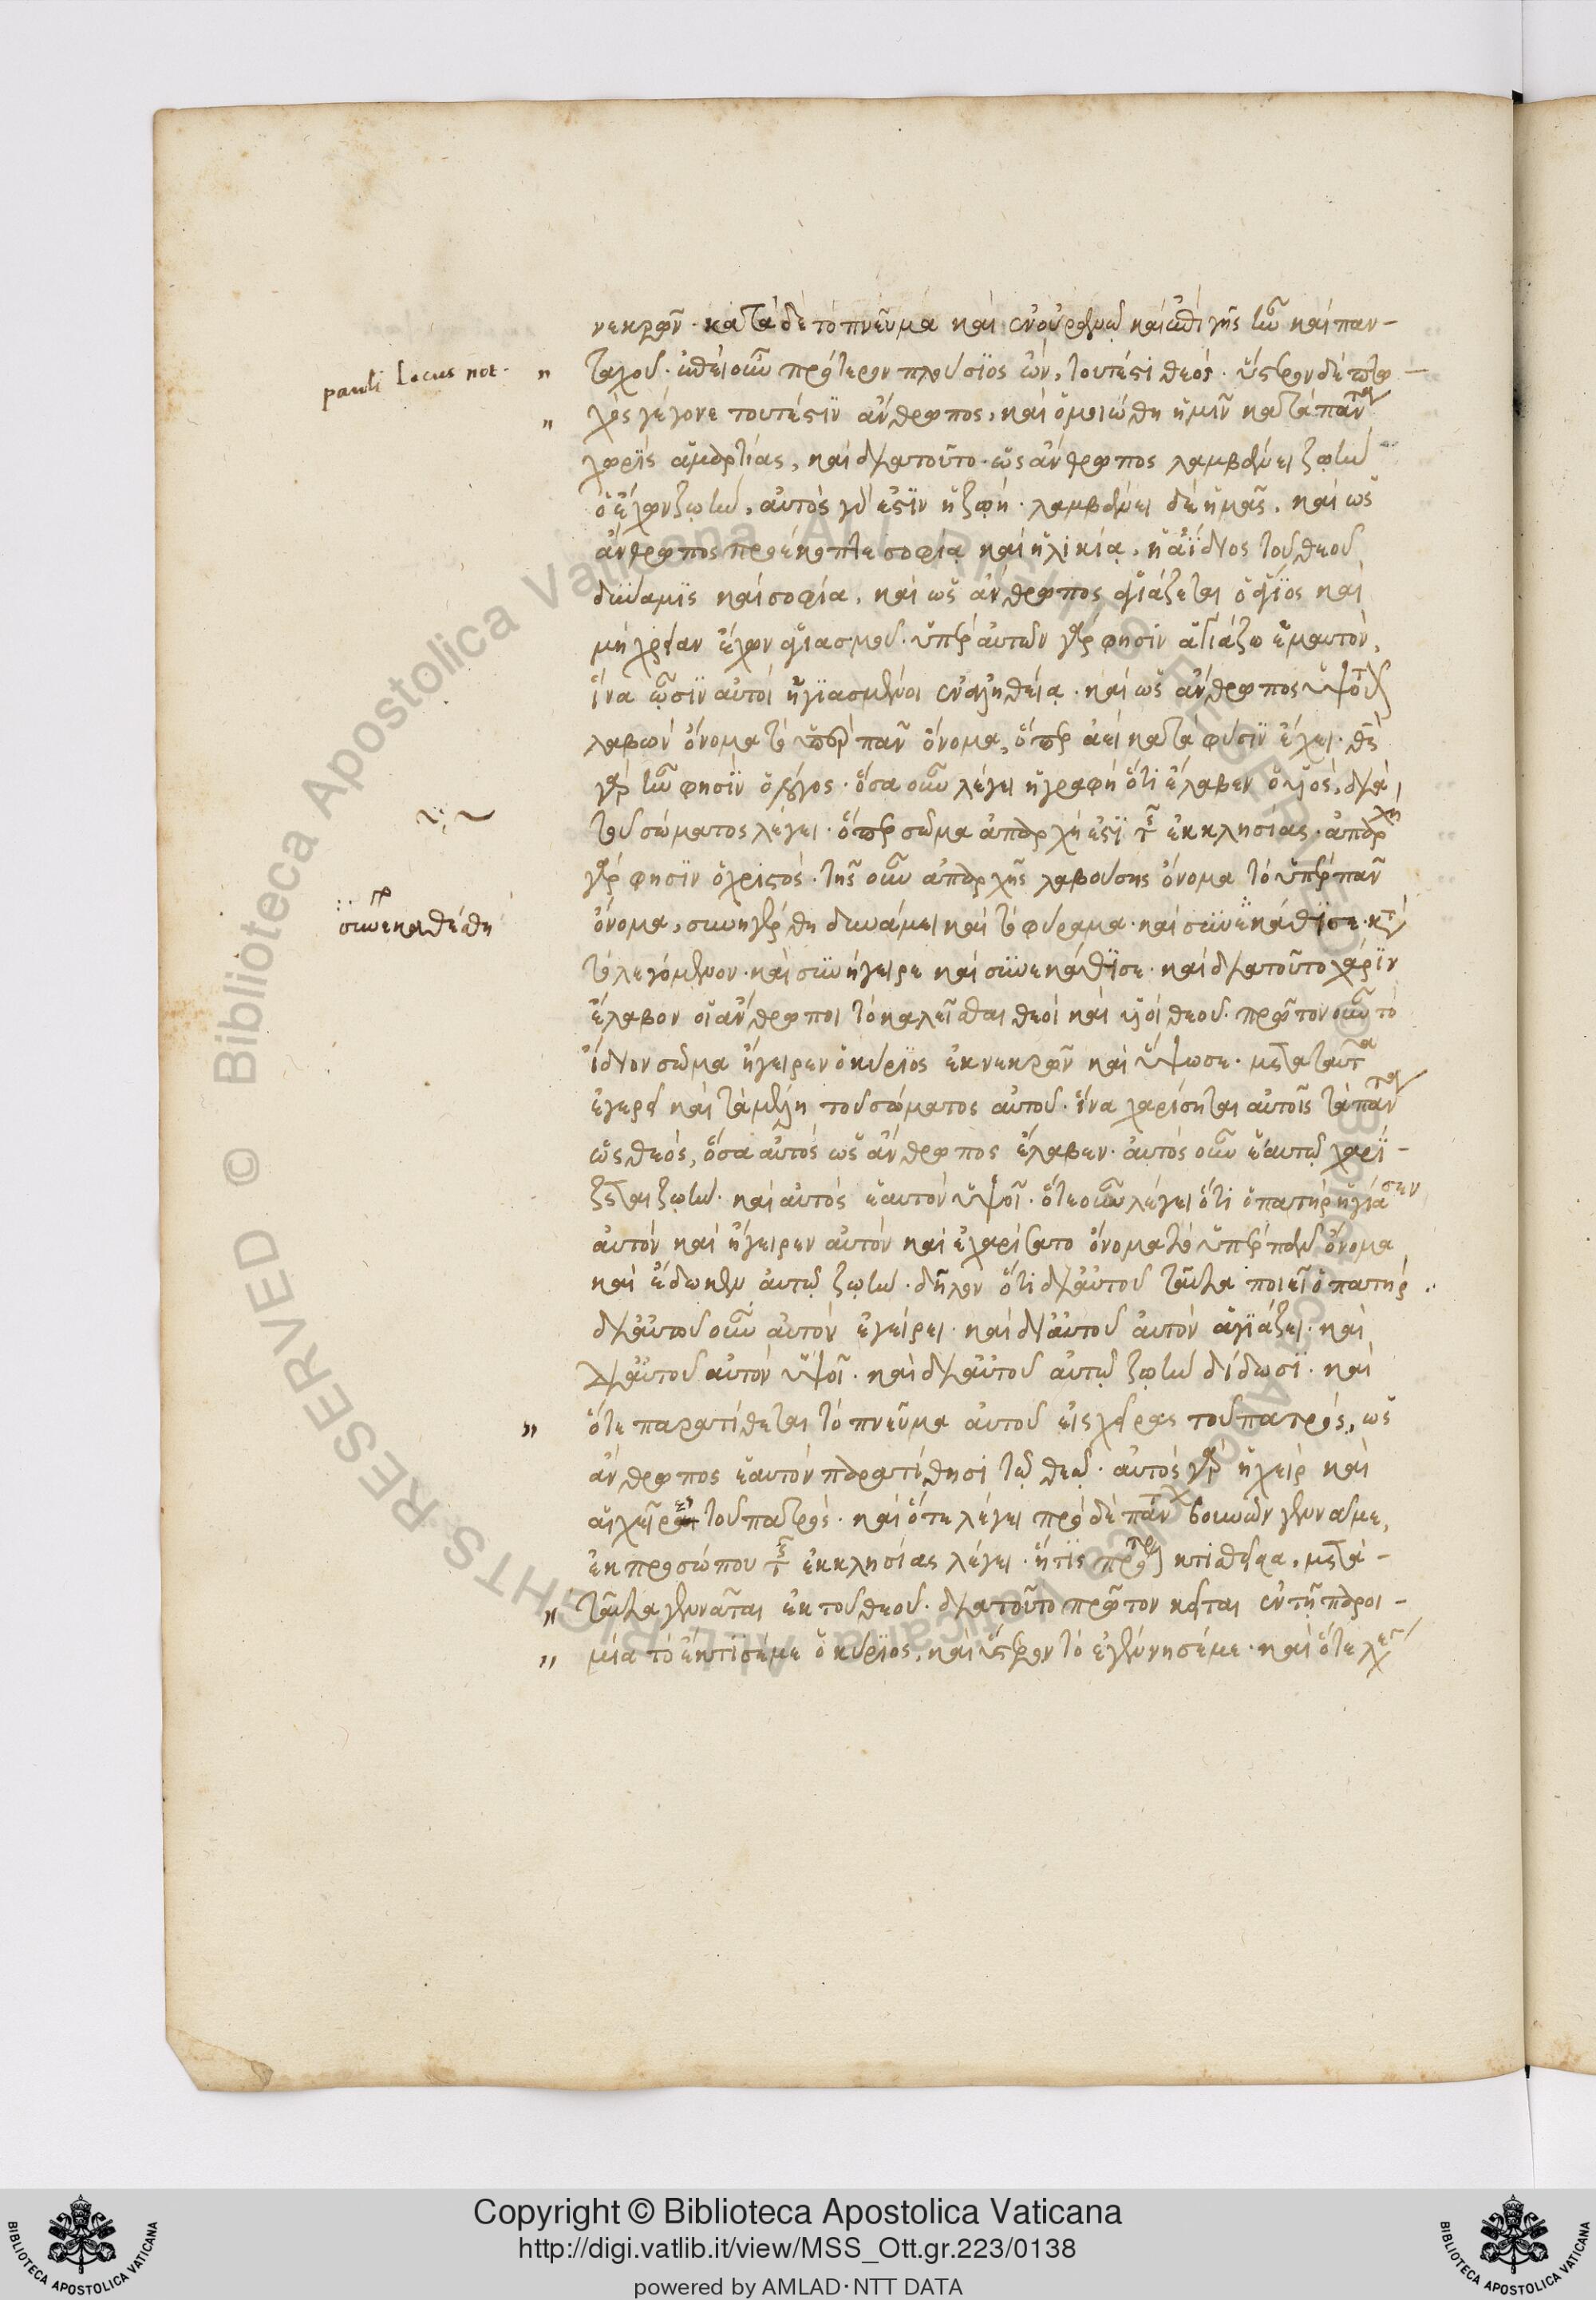 νεκρῶν· κατὰ δὲ τὸ πνεῦμα καὶ ἐν οὐρανῷ καὶ ἐπὶ γῆς ἦν καὶ παν-
pauli Locus not.
" ταχοῦ· ἐπεὶ οὖν πρότερον πλούσιος ὤν, τουτέστι θεός· ὕστερον δὲ πτω-
" χὸς γέγονε τουτέστιν ἄνθρωπος, καὶ ὁμοιώθη ἡμῖν κατὰ πάντα
χωρὶς ἁμαρτίας, καὶ διὰ τοῦτο· ὡς ἄνθρωπος λαμβάνει ζωὴν
ὁ ἔχων ζωὴν, αὐτὸς γάρ ἐστιν ἡ ζωή· λαμβάνει δὲ ἡμᾶς, καὶ ὡς
ἄνθρωπος προέκοπτε σοφίᾳ καὶ ἡλικίᾳ, ἡ ἀΐδιος τοῦ θεοῦ
δύναμις καὶ σοφία, καὶ ὡς ἄνθρωπος ἁγιάζεται ὁ ἅγιος καὶ
μὴ χρείαν ἔχων ἁγιασμοῦ· ὑπὲρ αὐτῶν γάρ φησιν ἁγιάζω ἐμαυτὸν,
ἵνα ὦσιν αὐτοὶ ἡγιασμένοι ἐν ἀληθείᾳ· καὶ ὡς ἄνθρωπος ὑψοῦται
λαβὼν ὄνομα τὸ ὑπὲρ πᾶν ὄνομα, ὅπερ ἀεὶ κατὰ φύσιν ἔχει· θεὸς
γὰρ ἦν φησὶν ὁ λόγος· ὅσα οὖν λέγει ἡ γραφὴ ὅτι ἔλαβεν ὁ υἱός, διὰ
τοῦ σώματος λέγει· ὅπερ σῶμα ἀπαρχή ἐστι τῆς ἐκκλησίας· ἀπαρχὴ
γάρ φησιν ὁ χριστός· τῆς οὖν ἀπαρχῆς λαβούσης ὄνομα τὸ ὑπὲρ πᾶν
γρ συνεκαθέσθη
ὄνομα, συνηγέρθη δυνάμει καὶ τὸ φύραμα· καὶ συνεκάθισε· κατὰ
τὸ λεγόμενον· καὶ συνήγειρε καὶ συνεκάθισε· καὶ διὰ τοῦτο χάριν
ἔλαβον οἱ ἄνθρωποι τὸ καλεῖσθαι θεοὶ καὶ υἱοὶ θεοῦ· πρῶτον οὖν τὸ
ἴδιον σῶμα ἤγειρεν ὁ κύριος ἐκ νεκρῶν καὶ ὕψωσε· μετὰ ταῦτα
ἐγερεῖ καὶ τὰ μέλη τοῦ σώματος αὐτοῦ· ἵνα χαρίσηται αὐτοῖς τὰ πάντα
ὡς θεός, ὅσα αὐτὸς ὡς ἄνθρωπος ἔλαβεν· αὐτὸς οὖν ἑαυτῷ χαρί-
ζεται ζωήν· καὶ αὐτὸς ἑαυτὸν ὑψοῖ· ὅτε οὖν λέγει ὅτι ὁ πατὴρ ἡγίασεν
αὐτὸν καὶ ἤγειρεν αὐτὸν καὶ ἐχαρίσατο ὄνομα τὸ ὑπὲρ πᾶν ὄνομα
καὶ ἔδωκεν αὐτῷ ζωὴν· δῆλον ὅτι δι' αὐτοῦ ταῦτα ποιεῖ ὁ πατήρ·
δι' αὐτοῦ οὖν αὐτὸν ἐγείρει· καὶ δι' αὐτοῦ αὐτὸν ἁγιάζει· καὶ
δι' αὐτοῦ αὐτὸν ὑψοῖ· καὶ δι' αὐτοῦ αὐτῷ ζωὴν δίδωσι· καὶ
" ὅτε παρατίθεται τὸ πνεῦμα αὐτοῦ εἰς χεῖρας τοῦ πατρός, ὡς
ἄνθρωπος ἑαυτὸν παρατίθησι τῷ θεῷ· αὐτὸς γὰρ ἡ χεὶρ καὶ
αἱ χεῖρες τοῦ πατρός· καὶ ὅτε λέγει πρὸ δὲ πάντων βουνῶν γεννᾷ με,
ἐκ προσώπου τῆς ἐκκλησίας λέγει· ἥτις πρότερον κτισθεῖσα, μετὰ-
" ταῦτα γεννᾶται ἐκ τοῦ θεοῦ· διὰ τοῦτο πρῶτον κεῖται ἐν τῇ παροι-
" μία τὸ ἔκτισέ με ὁ κύριος, καὶ ὕστερον τὸ ἐγέννησέ με· καὶ ὅτε λέγει
Copyright © Biblioteca Apostolica Vaticana
http://digi.vatlib.it/view/MSS_Ott.gr.223/0138
powered by AMLAD·NTT DATA
BIBLIOTECA APOSTOLICA VATICANA
BIBLIOTECA APOSTOLICA VATICANA